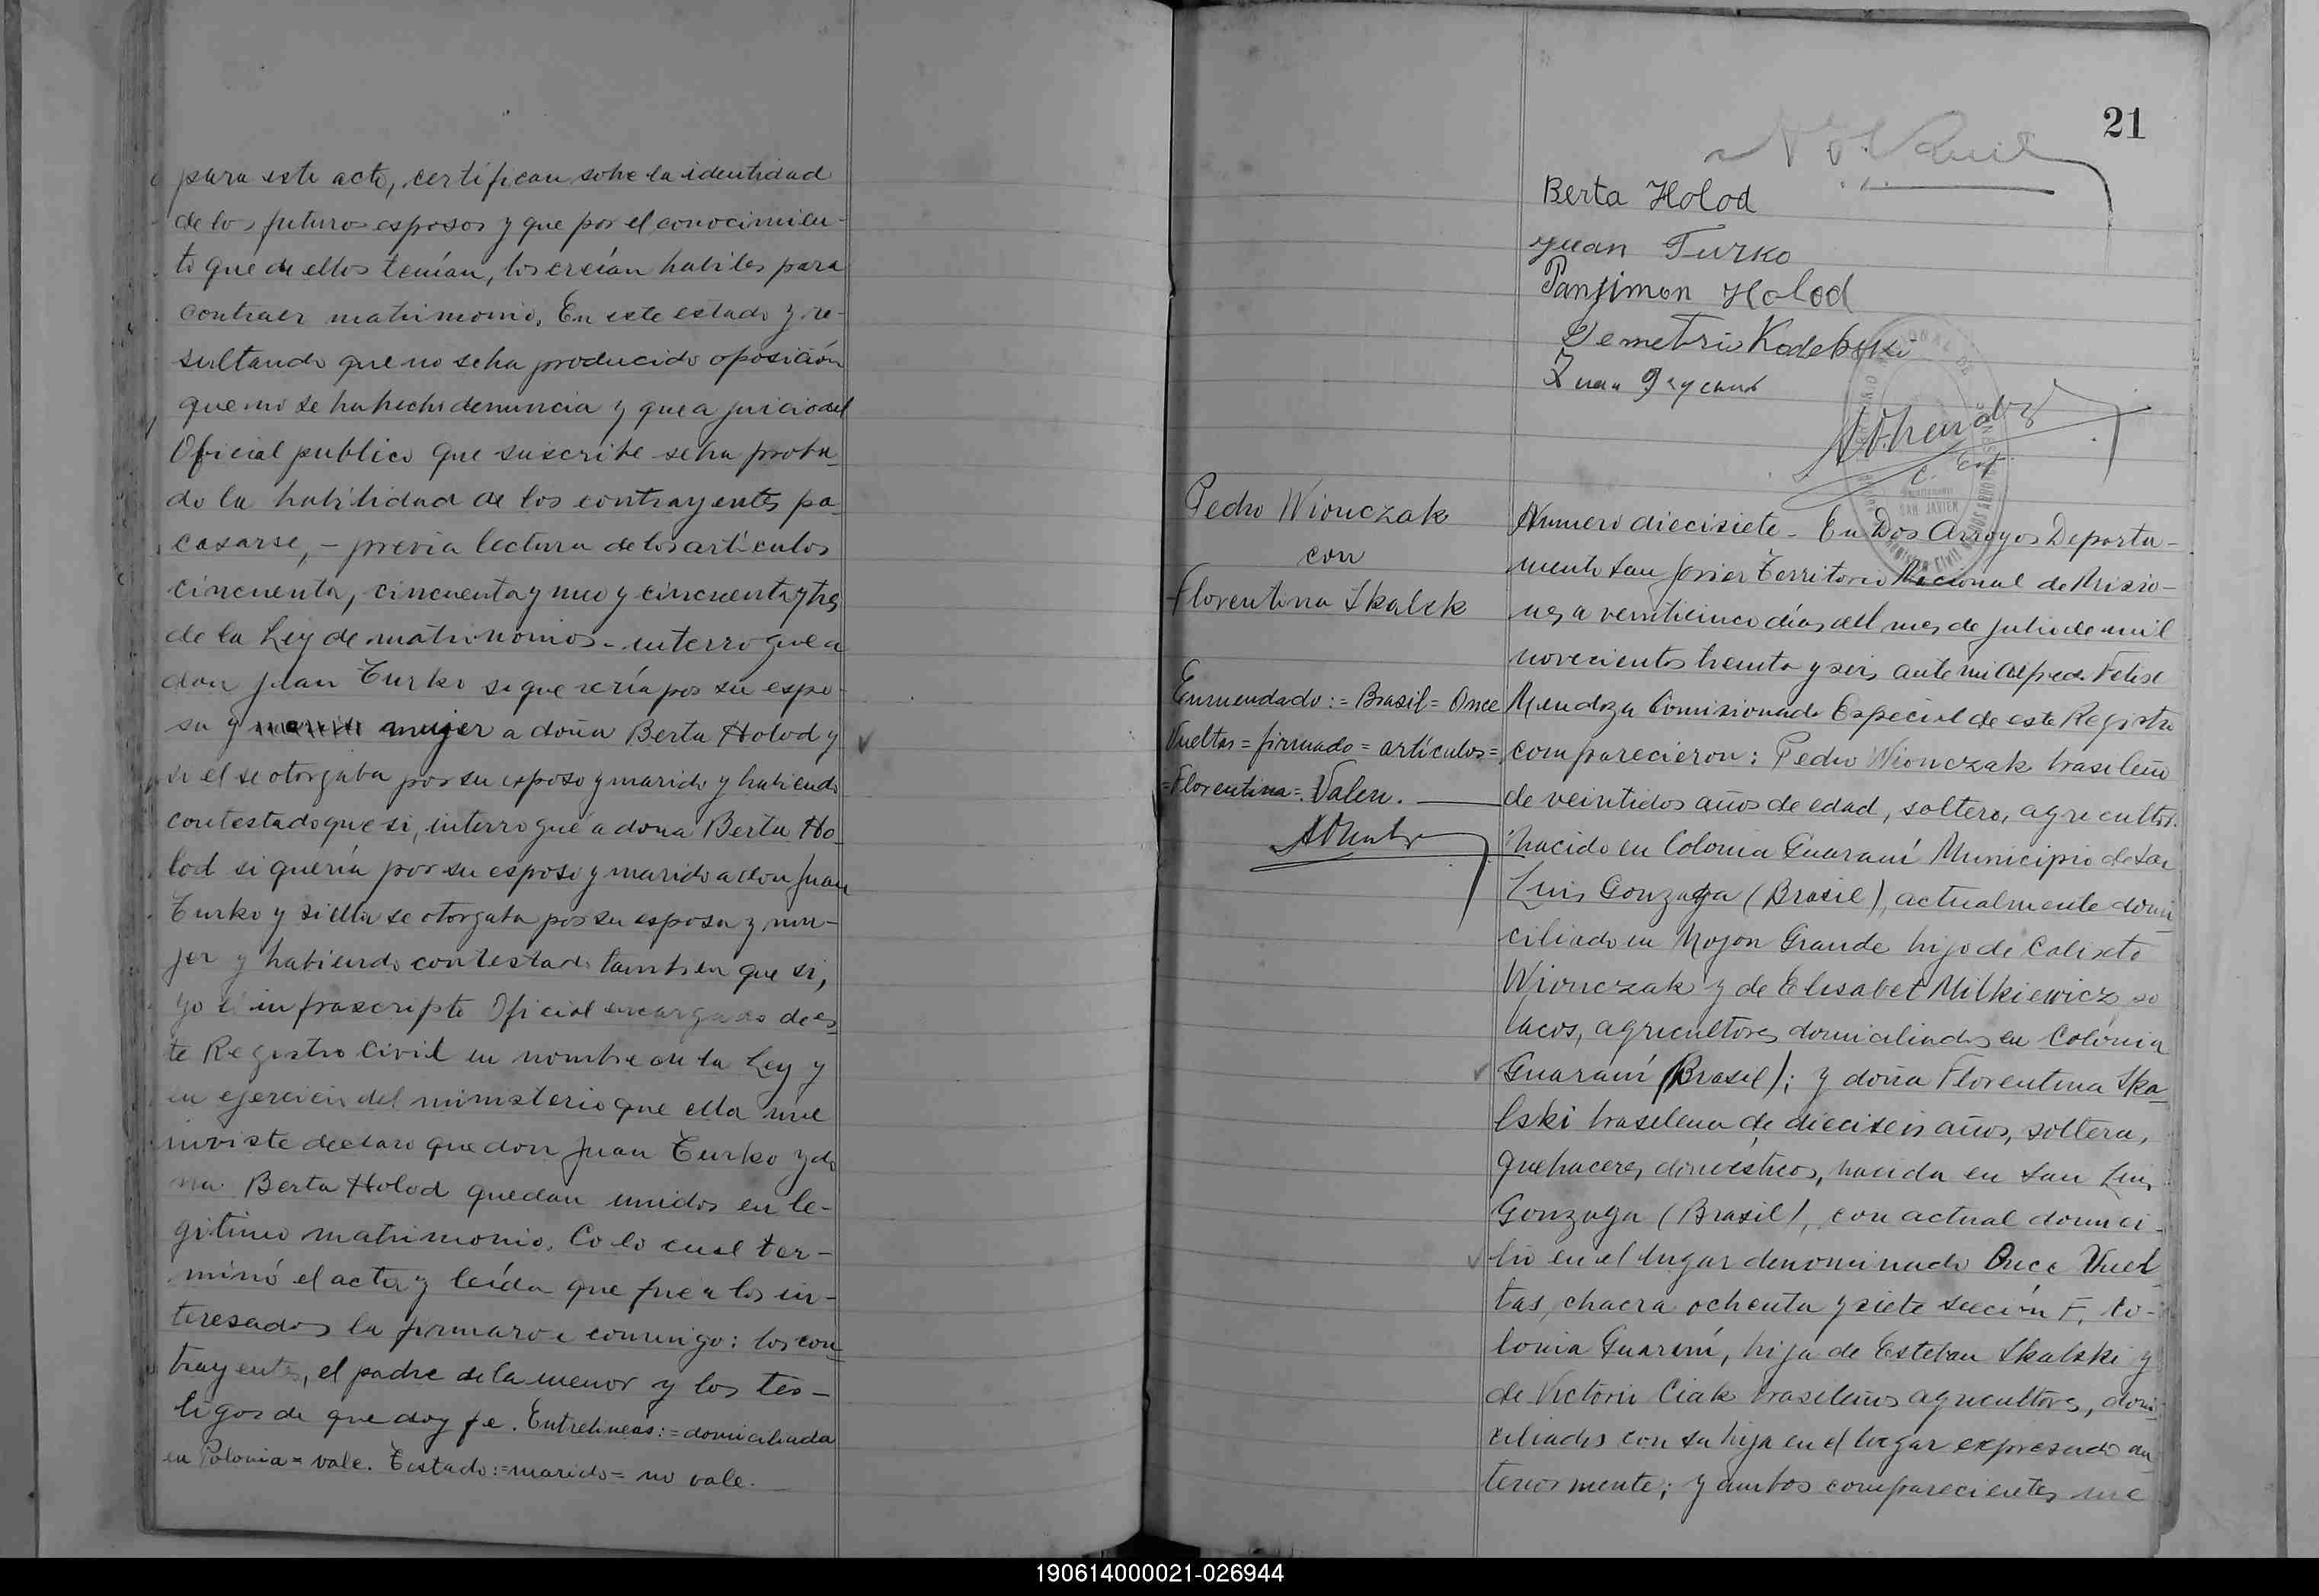 para este acto, certifican sobre la identidad
de los futuros esposos y que por el conocimien-
to que de ellos tenían, los creían habiles para
contraer matrimonio. En este estado y re-
sultando que no se ha producido oposición
que no se ha hecho denuncia y que a juicio del
Oficial publico que suscribe se ha proba-
do la habilidad de los contrayentes pa-
casarse, - previa lectura de los artículos
cincuenta, cincuenta y uno y cincuenta y tres
de la Ley de matrimonios - interrogue a
don Juan Turko si quería por su espo-
sa y marido mujer a doña Berta Holod y
si el se otorgaba por su esposo y marido y habiendo
contestado que si, interrogué a dona Berta Ho-
lod si quería por su esposo y marido a don Juan
Turko y si ella se otorgaba por su esposa y mu-
jer y habiendo contestado tambien que si,
yo el infrascripto Oficial encargado de es-
te Registro Civil en nombre de la Ley y
en ejercicio del ministerio que ella me
inviste declaro que don Juan Turko y do
na Berta Holod quedan unidos en le-
gitimo matrimonio. Co lo cual ter-
minó el acta y leída que fue a los in-
teresados la firmaron conmigo: los con-
trayentes, el padre de la menor y los tes-
tigos de que doy fe. Entrelineas: = domiciliada
en Polonia = vale. Testado: = marido = no vale.
21
Berta Holod
Juan Turko
Panjimon Holod
Demetrio
Juan
C. Esp.
SAN JAVIER
Pedro Wionczak
con
Florentina Skalsk
Enmendado: = Brasil = Once
Vueltas = firmado = artículos =
= Florentina = Valen.
Numero diecisiete - En Dos Arroyos Departa-
mento San Javier Territorio Nacional de Misio-
nes a veinticinco días del mes de julio de mil
novecientos treinta y seis, ante mi Alfredo Felix
Mendoza Comisionado Especial de este Registro
comparecieron: Pedro Wionczak brasileño
de veintidos años de edad, soltero, agricultor
nacido en Colonia Guaraní Municipio de San
Luis Gonzaga (Brasil), actualmente domi-
ciliado en Mojon Grande hijo de Calixto
Wionczak y de Elisabet Milkiewicz, po
lacos, agricultores domiciliados en Colonia
Guaraní (Brasil); y doña Florentina Ska-
lski brasilena de dieciseis años, soltera,
quehaceres domésticos, nacida en San Luis
Gonzaga (Brasil), con actual domici-
lio en el lugar denominado Once Vuel
tas, chacra ochenta y siete sección F, Co-
lonia Guaraní, hija de Esteban Skalski y
de Victoria Ciak brasileños agricultores, domi
ciliados con su hija en el lugar expresado an-
teriormente; y ambos comparecientes me
190614000021-026944